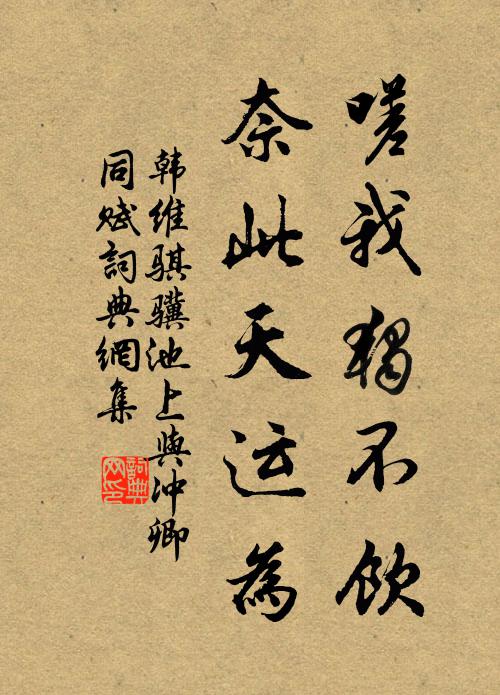 嗟我独不饮
奈此天运为
韩维骐骥池上与冲卿
同赋詞典網集
詞典
网印